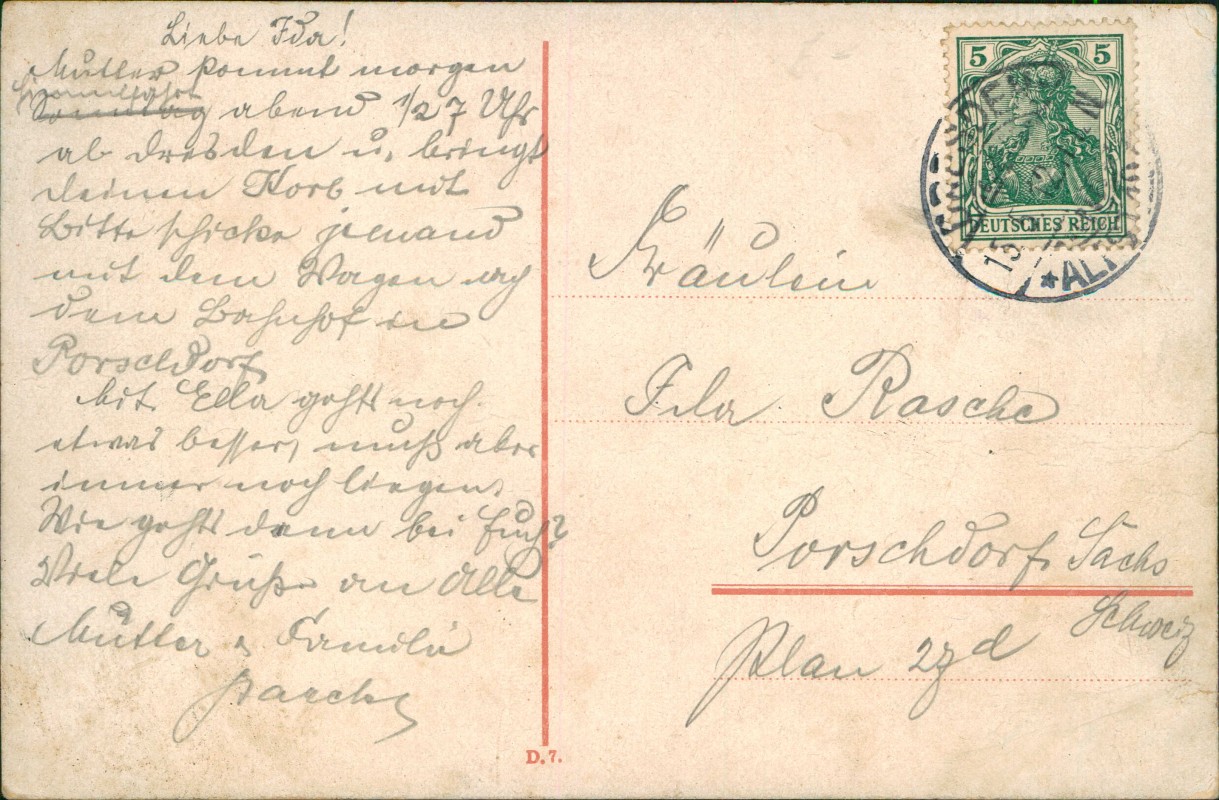 Liebe Ida!
Mutter kommt morgen
Himmelfahrt
Sonntag abend 1/2 7 Uhr
ab Dresden u. bringt
deinen Korb mit
Bitte schicke jemand
mit dem Wagen nach
dem Bahnhof in
Porschdorf
Mit Ella gehts noch
etwas besser, muß aber
immer noch liegen.
Wie gehts denn bei Euch?
Viele Grüße an Alle
Mutter & Familie
D. 7.
5 5
DEUTSCHES REICH
DRESDEN
*ALT
Fräulein
Ida Rasche
Porschdorf Sächs
Schweiz
Plan 27d